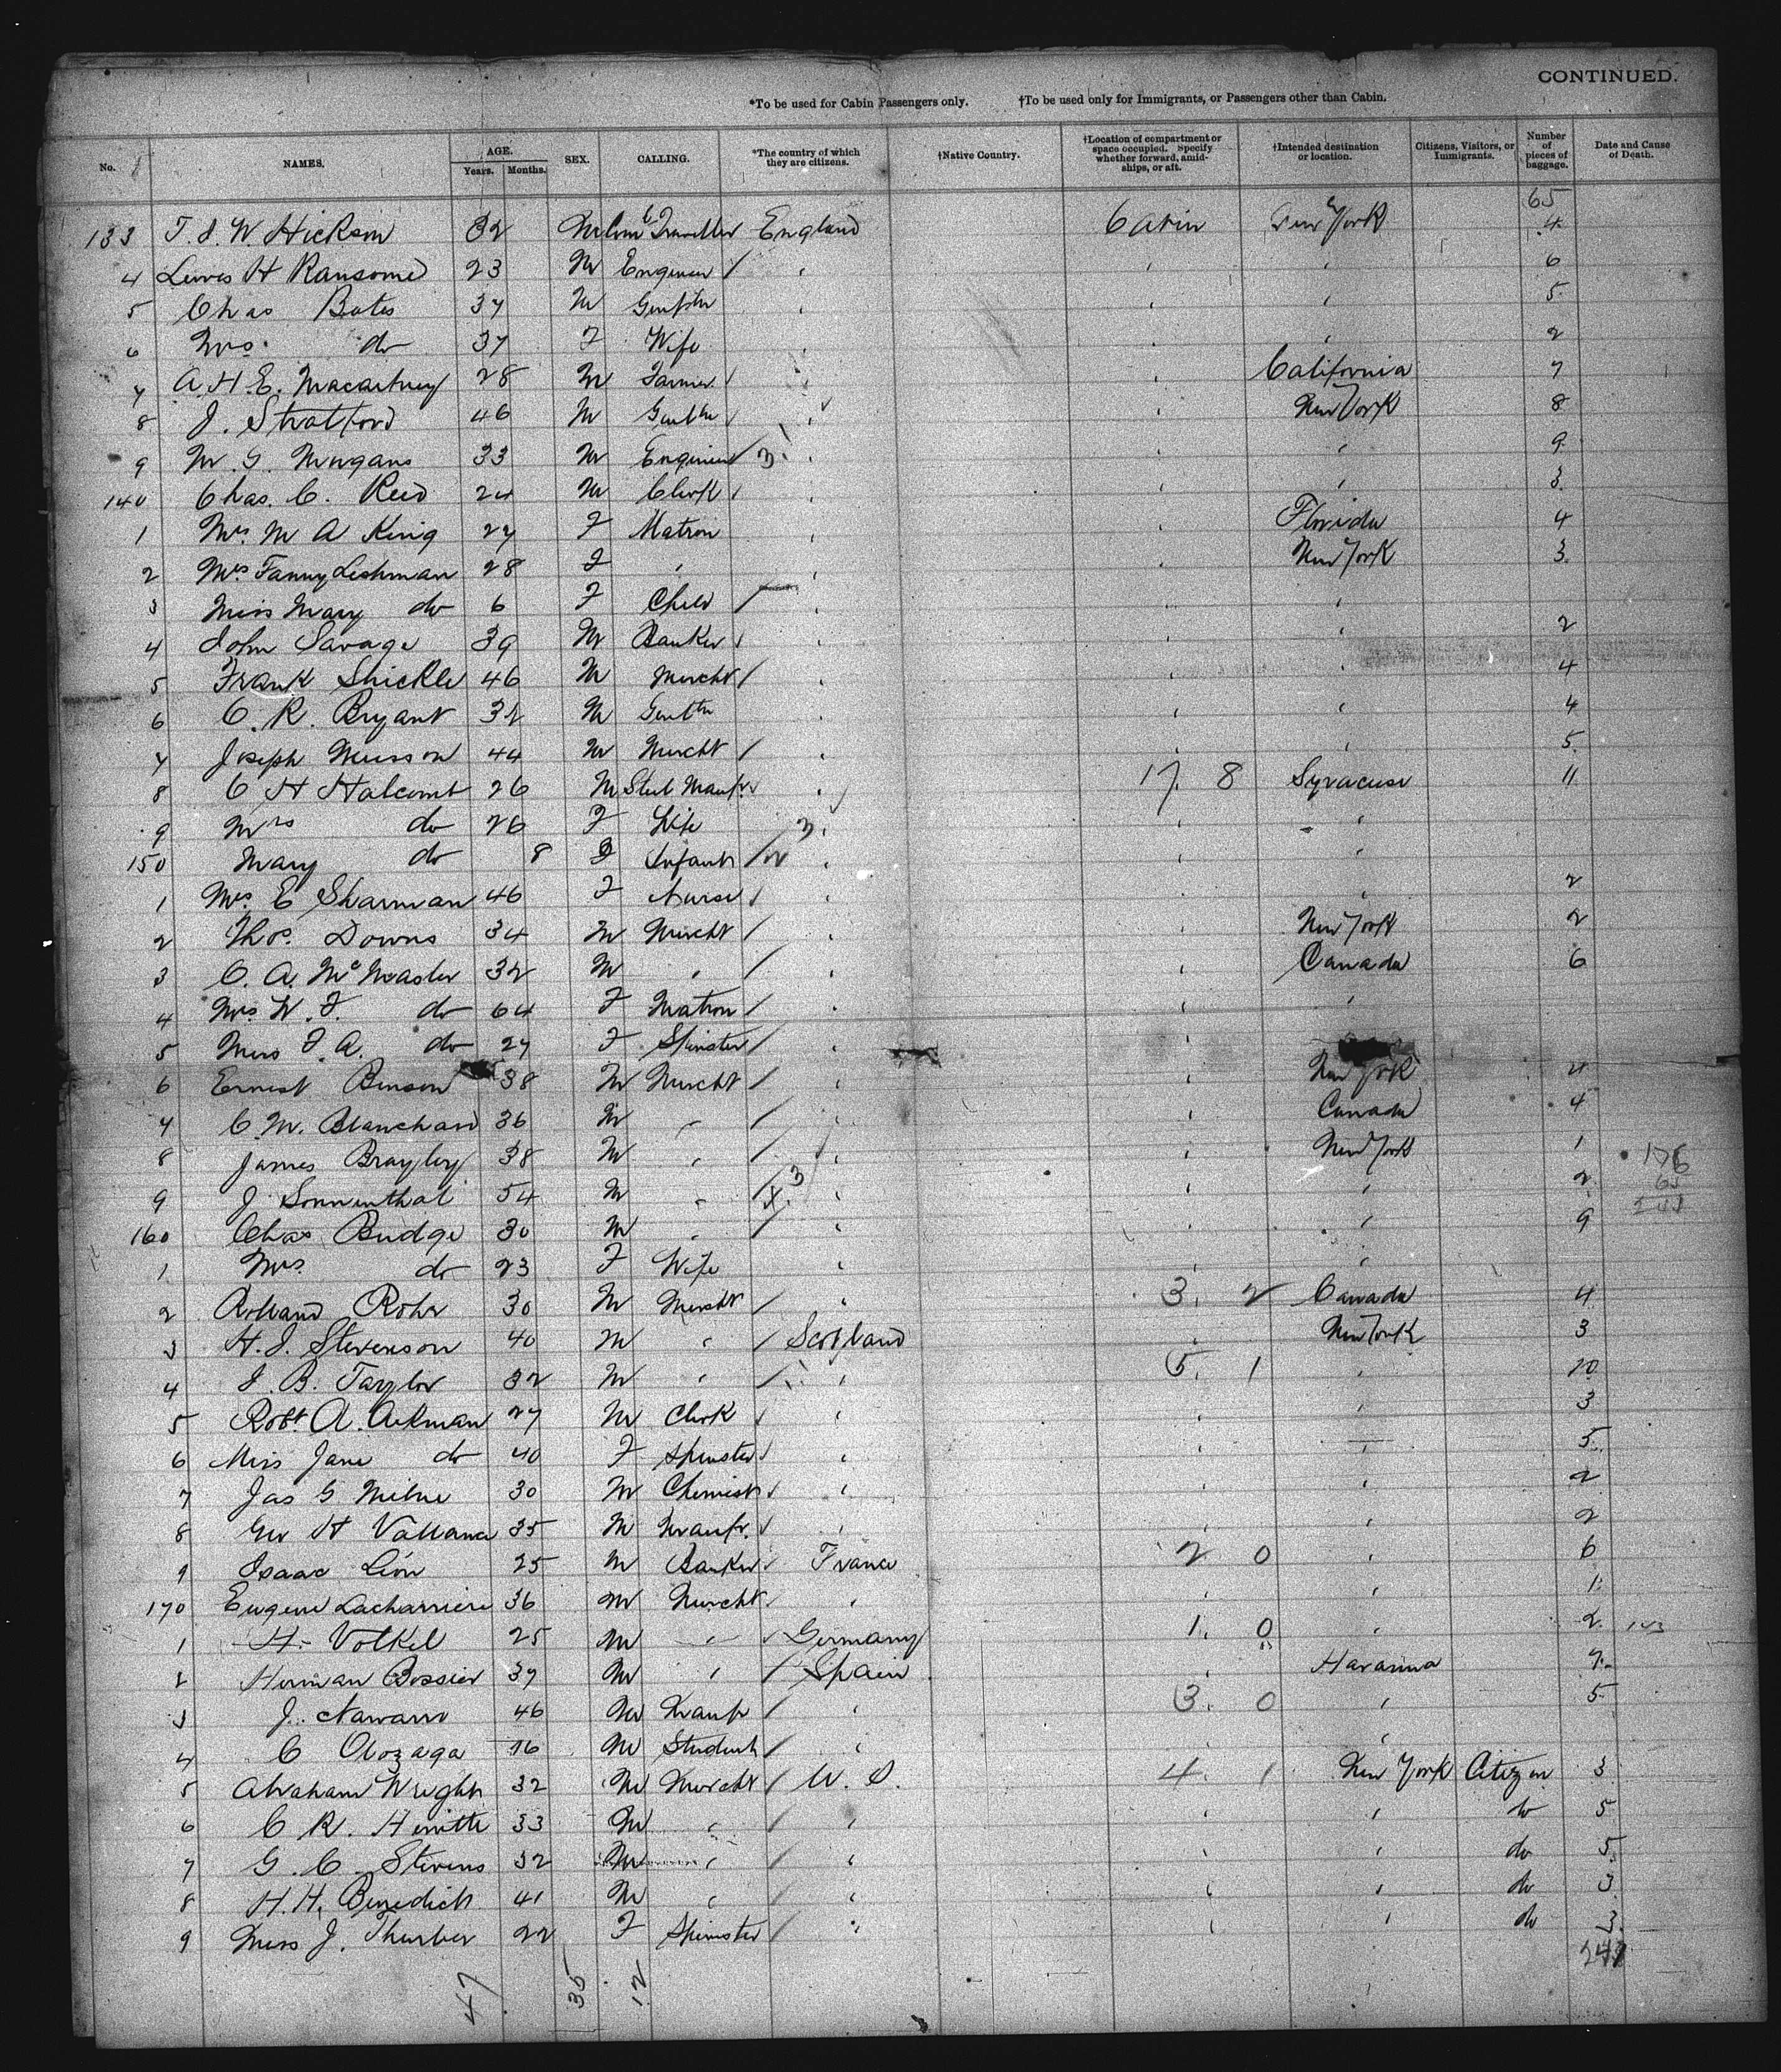 CONTINUED.
*To be used for Cabin Passengers only. †To be used only for Immigrants, or Passengers other than Cabin.
No. NAMES. AGE. Years. Months. SEX. CALLING. *The country of which they are citizens. †Native Country. †Location of compartment or space occupied. Specify whether forward, amidships, or aft. †Intended destination or location. Citizens, Visitors, or Immigrants. Number of pieces of baggage. Date and Cause of Death.
65
133 T. J. W. Hickson 32 M Coml Traveller England Cabin New York 4
4 Lewis H Ransome 23 M Engineer / " " " 6
5 Chas Bates 37 M Gentln " " " 5
6 Mrs. do 37 F Wife " " " 2
7 A. H. E. Macartney 28 M Farmer / " " California 7
8 J. Stratford 46 M Gentln / " " New York 8
9 M. G. Morgans 33 M Engineer / 3 " " " 9
140 Chas. C. Reed 24 M Clerk / " " " 3
1 Mrs. M A King 27 F Matron " " Florida 4
2 Mrs Fanny Leshman 28 F " " " New York 3
3 Miss Mary do 6 F Child / " " "
4 John Savage 39 M Banker / " " " 2
5 Frank Shickle 46 M Mercht / " " " 4
6 C. R. Bryant 32 M Gentln " " " 4
7 Joseph Musson 44 M Mercht / " " " 5
8 C H Halcomb 26 M Steel Manfr. / " 17. 8 Syracuse 11
9 Mrs do 26 F Wife 3 " " "
150 Mary do 8 F Infant / " " "
1 Mrs. E Sharman 46 F Nurse / " " " 2
2 Thos. Downs 34 M Mercht / " " New York 2
3 C. A. McMaster 32 M " / " " Canada 6
4 Mrs. W. F. do 64 F Matron / " " "
5 Miss F. A. do 27 F Spinster / " "
6 Ernest Benson 38 M Mercht / " " New York 4
7 C. M. Blanchard 36 M " / " " Canada 4
8 James Brayley 38 M " / " " New York 1 176
9 J Sonnenthal 54 M " / X 3 " " " 2 65
160 Chas Budge 30 M " / " " " 9
1 Mrs. do 23 F Wife " " "
2 Rolland Rohr 30 M Mercht / " 3. 2 Canada 4
3 H. J. Stevenson 40 M " / Scotland " New York 3
4 J. B. Taylor 32 M " / " 5. 1 " 10
5 Robt. A. Aikman 27 M Clerk / " " " 3
6 Miss Jane do 40 F Spinster / " " " 5
7 Jas G Milne 30 M Chemist / " " " 2
8 Geo H Vallance 35 M Manfr. / " " " 2
9 Isaac Léon 25 M Banker / France 2 0 " 6
170 Eugene Lacharriere 36 M Mercht / " " " 1
1 H. Volkel 25 M " / Germany 1. 0 " 2
2 Herman Bossier 39 M " / Spain " Havanna 9
3 J. Navarro 46 M Manfr / " 3. 0 " 5
4 C Olozaga 16 M Student / " "
5 Abraham Wright 32 M Mercht / U. S. 4. 1 New York Citizen 3
6 C R. Hewitte 33 M " / " " " do 5
7 G. C. Stevens 32 M " / " " " do 5
8 H. H. Benedict 41 M " / " " " do 3
9 Miss J. Thurber 22 F Spinster / " " " do 3
47 35 12